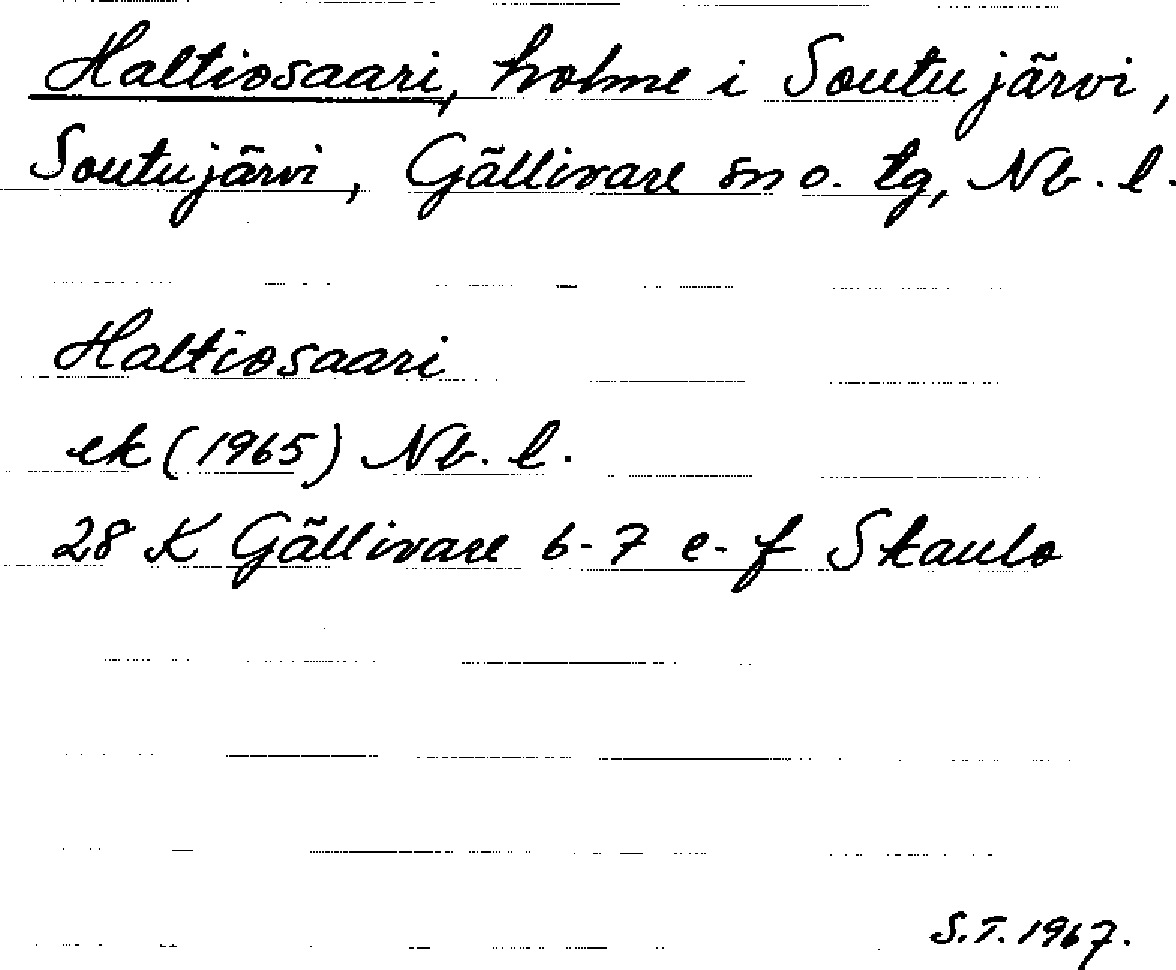 Haltiosaari, holme i Soutujärvi,
Soutujärvi, Gällivare sn o. tg, Nb. l.
Haltiosaari
ek (1965) Nb. l.
28 K Gällivare 6-7 e-f Skaulo
S.T. 1967.